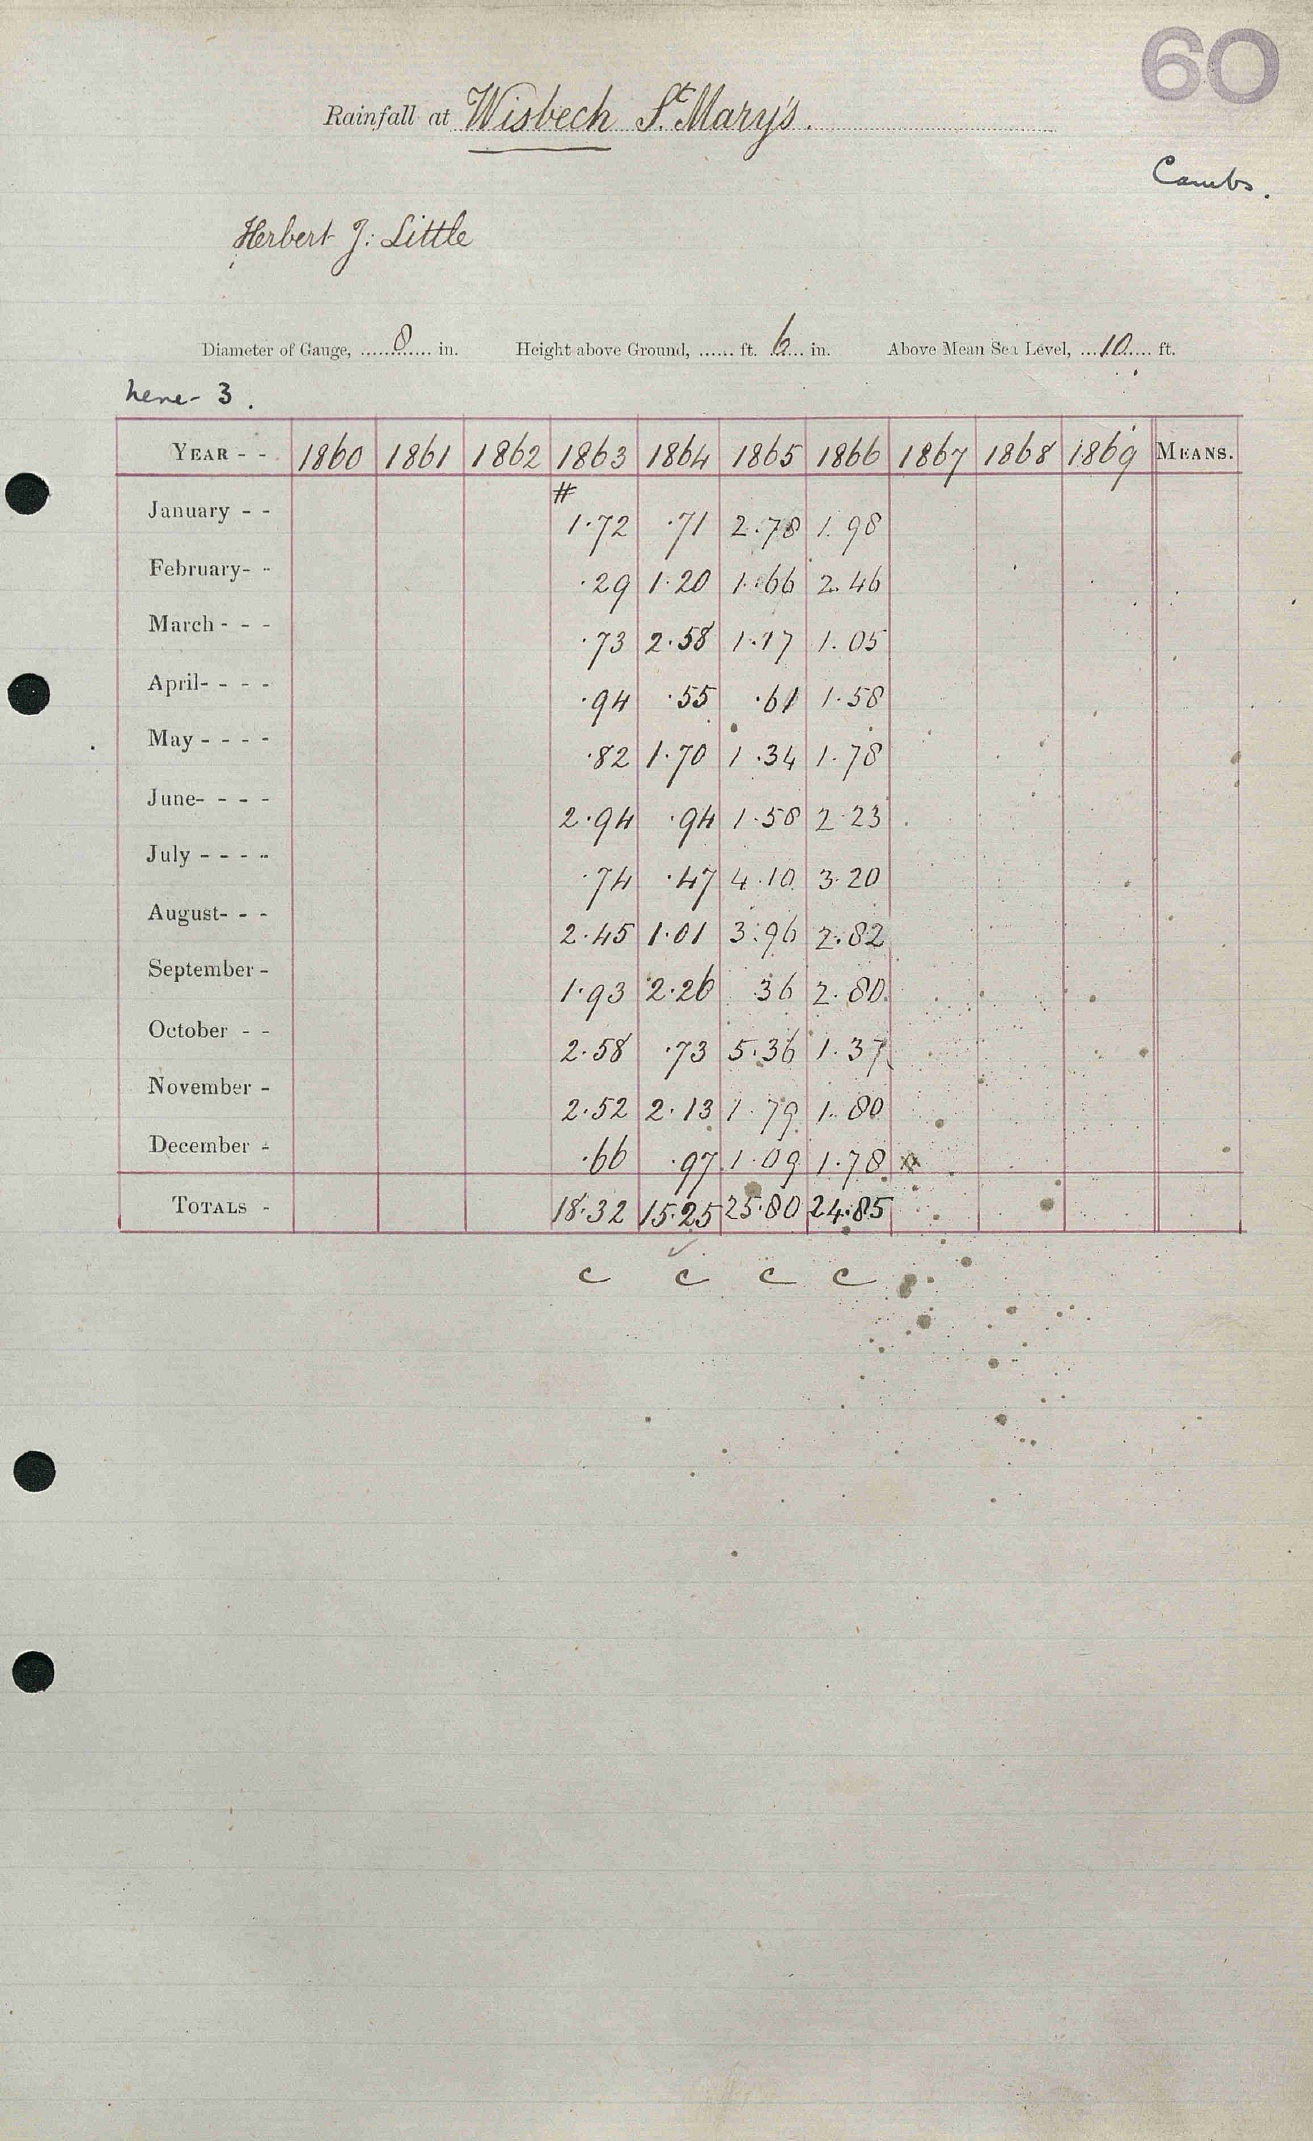 60
Rainfall at Wisbech St. Mary's.
Cambs.
Herbert J. Little
Diameter of Gauge, 8 in. Height above Ground, ...... ft. 6 in. Above Mean Sea Level, 10 ft.
Nene - 3.
YEAR - - 1860 1861 1862 1863 1864 1865 1866 1867 1868 1869 MEANS.
#
January - - 1.72 .71 2.78 1.98
February - - .29 1.20 1.66 2.46
March - - - .73 2.58 1.17 1.05
April - - - - .94 .55 .61 1.58
May - - - - .82 1.70 1.34 1.78
June - - - - 2.94 .94 1.58 2.23
July - - - - .74 .47 4.10 3.20
August - - - 2.45 1.01 3.96 2.82
September - 1.93 2.26 36 2.80
October - - 2.58 .73 5.36 1.37
November - 2.52 2.13 1.79 1.80
December - .66 .97 1.09 1.78 x
TOTALS - 18.32 15.25 25.80 24.85
c c c c